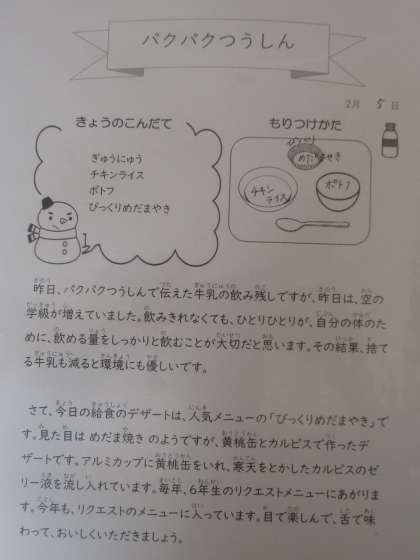 パクパクつうしん
2月 5 日
きょうのこんだて
ぎゅうにゅう
チキンライス
ポトフ
びっくりめだまやき
もりつけかた
めだまやき
チキン
ライス
ポトフ
昨日、パクパクつうしんで伝えた牛乳の飲み残しですが、昨日は、空の
学級が増えていました。飲みきれなくても、ひとりひとりが、自分の体のた
めに、飲める量をしっかりと飲むことが大切だと思います。その結果、捨て
る牛乳も減ると環境にも優しいです。
さて、今日の給食のデザートは、人気メニューの「びっくりめだまやき」で
す。見た目は めだま焼き のようですが、黄桃缶とカルピスで作ったデ
ザートです。アルミカップに黄桃缶をいれ、寒天をとかしたカルピスのゼ
リー液を流し入れています。毎年、6年生のリクエストメニューにあがりま
す。今年も、リクエストのメニューに入っています。目で楽しんで、舌で味
わって、おいしくいただきましょう。